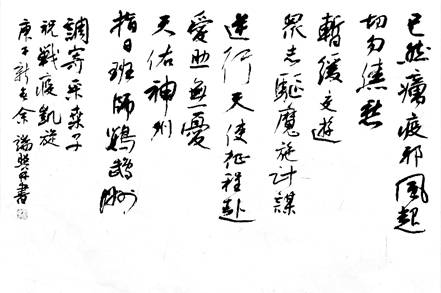 已然癘疫邪風起
切勿焦愁
暫緩交遊
眾志驅魔施計謀
逆行天使征程赴
愛助無憂
天佑神州
指日班師鸚鵡洲
調寄采桑子
祝戰疫凱旋
庚子新春余瑞書